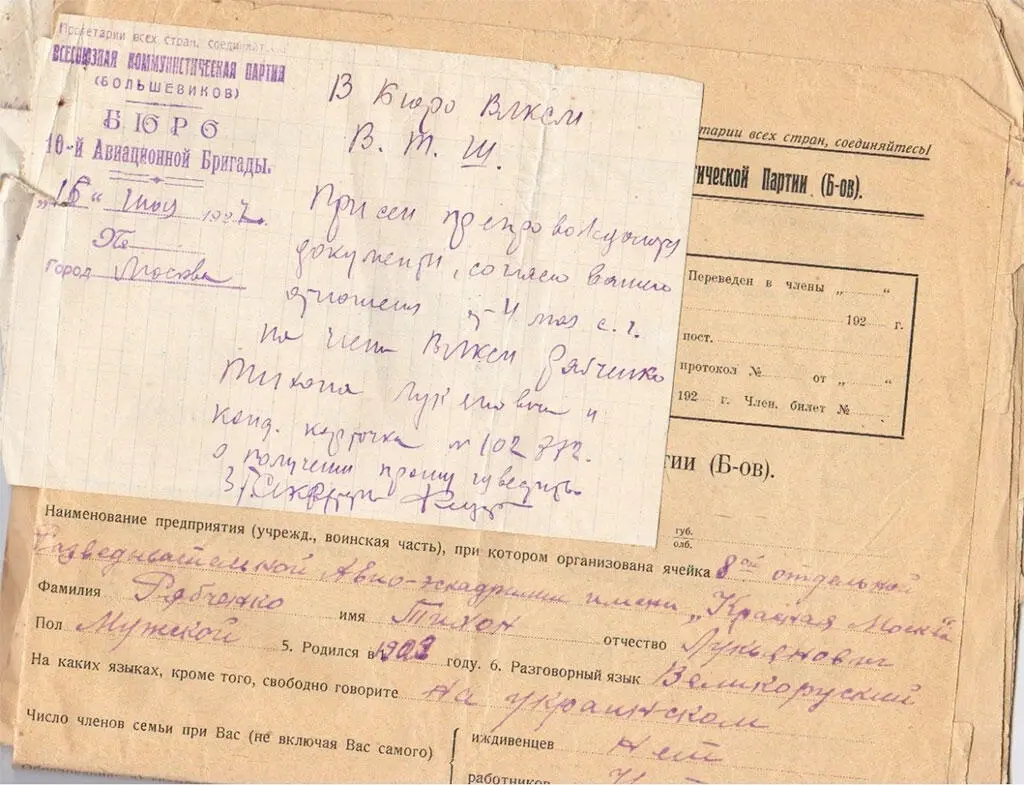 Пролетарии всех стран, соединяйтесь
ВСЕСОЮЗНАЯ КОММУНИСТИЧЕСКАЯ ПАРТИЯ
(БОЛЬШЕВИКОВ)
БЮРО
10-й Авиационной Бригады.
„16“ мая 1927 г.
№
Город Москва
В Бюро ВЛКСМ
В. Т. Ш.
При сем препровождаются
документы, согласно вашего
отношения от 4 мая с. г.
на члена ВЛКСМ Рябченко
Тихона Лукьяновича и
канд. карточка № 102772.
О получении прошу уведомить.
тарии всех стран, соединяйтесь!
тической Партии (Б-ов).
Переведен в члены „ “
192 г.
пост.
протокол № от „ “
192 г. Член. билет №
тии (Б-ов).
губ.
обл.
Наименование предприятия (учрежд., воинская часть), при котором организована ячейка 8ой отдельной
Разведывательной Авио-эскадрилии имени „Красная Москва"
Фамилия Рябченко имя Тихон отчество Лукьянович
Пол Мужской 5. Родился в 1903 году. 6. Разговорный язык Великоруский
На каких языках, кроме того, свободно говорите на украинском
Число членов семьи при Вас (не включая Вас самого) иждивенцев нет
работников